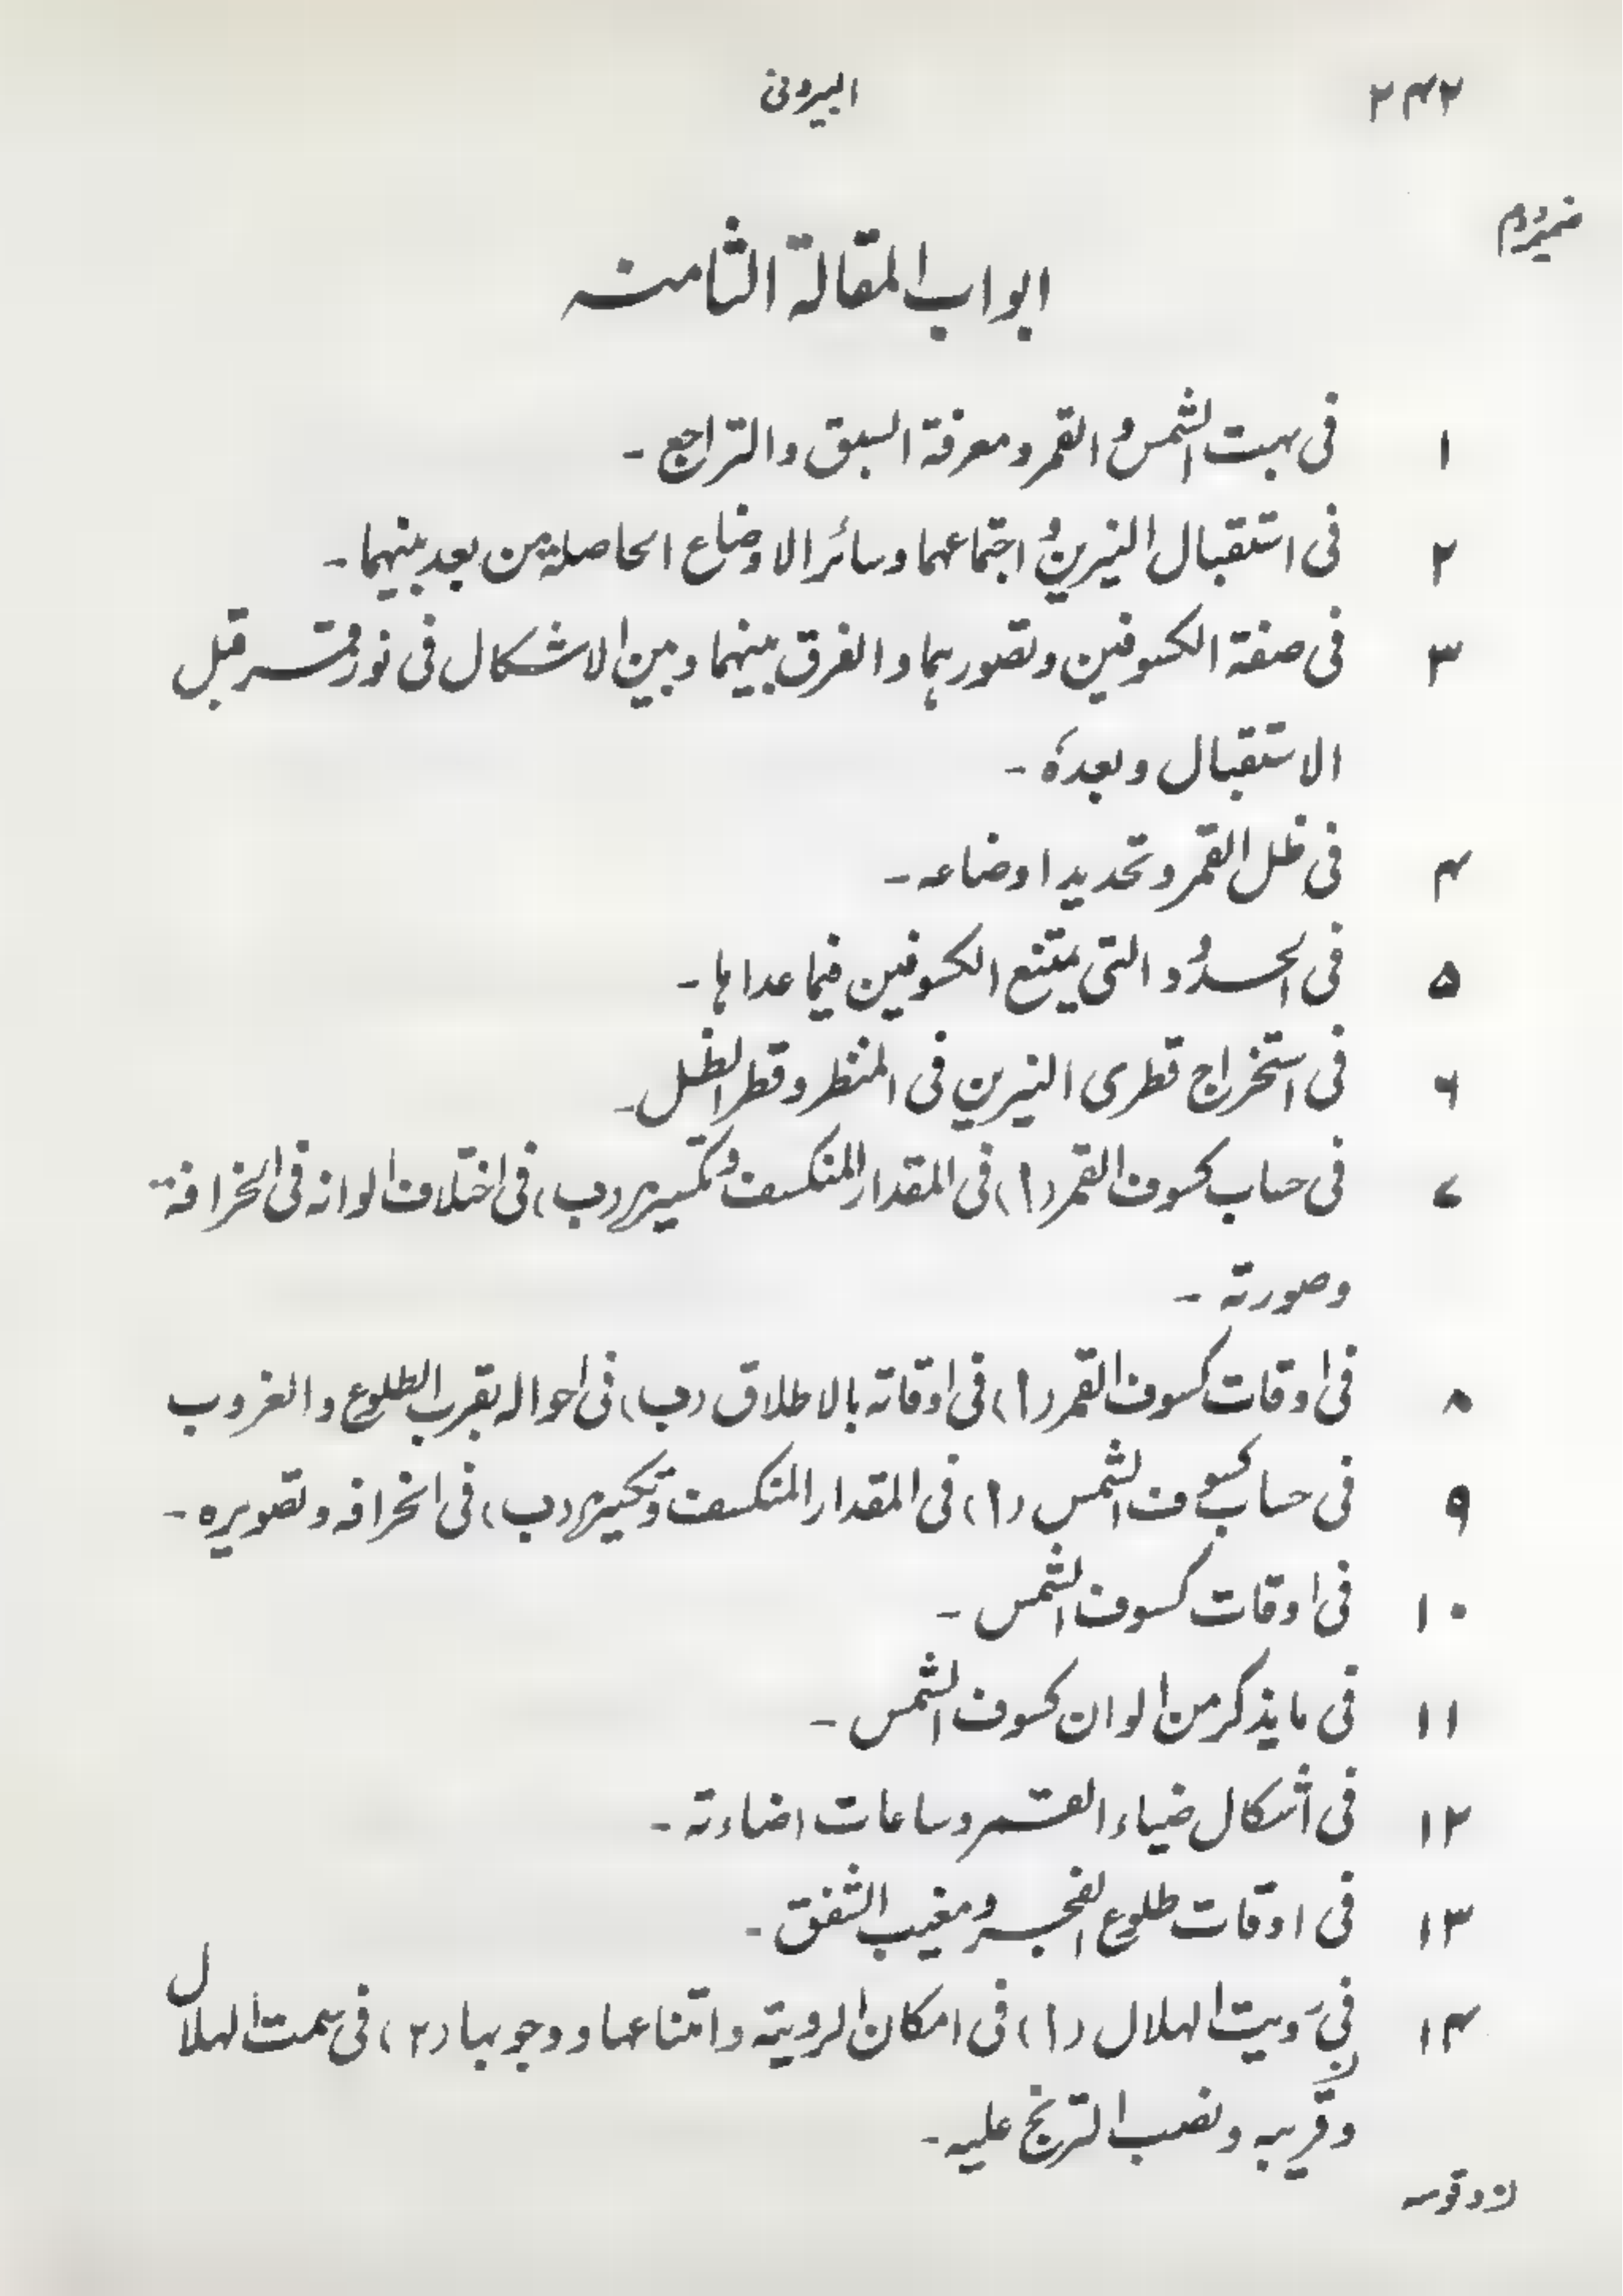 ۲۴۲ البیرونی
ضمیمہ دوم
ابواب المقالة الثامنہ
۱ فی بہت الشمس و القمر و معرفة السبق والتراجع ۔
۲ فی استقبال النیرین و اجتماعہما و سائر الاوضاع الحاصلة من بعد بینہما ۔
۳ فی صفة الکسوفین و تصورہما و الفرق بینہما و بین الاشکال فی نور قمر قبل
الاستقبال و بعدہ ۔
۴ فی ظل القمر و تحدید اوضاعہ ۔
۵ فی الحدود التی یمتنع الکسوفین فیما عداہا ۔
۶ فی استخراج قطری النیرین فی المنظر و قطر الظل ۔
۷ فی حساب کسوف القمر (ا) فی المقدار المنکسف و تکسیرہ (ب) فی اختلاف الوانہ فی انخرافة
وصورتہ ۔
۸ فی اوقات کسوف القمر (ا) فی اوقاتہ بالاطلاق (ب) فی احوالہ بقرب الطلوع و الغروب
۹ فی حساب کسوف الشمس (ا) فی المقدار المنکسف و تکیرہ (ب) فی انخرافہ و تصویرہ ۔
۱۰ فی اوقات کسوف الشمس ۔
۱۱ فی مایذکر من الوان کسوف الشمس ۔
۱۲ فی أشکال ضیاء القمر و ساعات اضاءتہ ۔
۱۳ فی اوقات طلوع الفجر و مغیب الشفق ۔
۱۴ فی رویت الہلال (ا) فی امکان الرویتہ و امتناعہا و وجوبہا (۲) فی سمت الہلال
وقریبہ و نصب التربخ علیہ ۔
ن وقوسہ